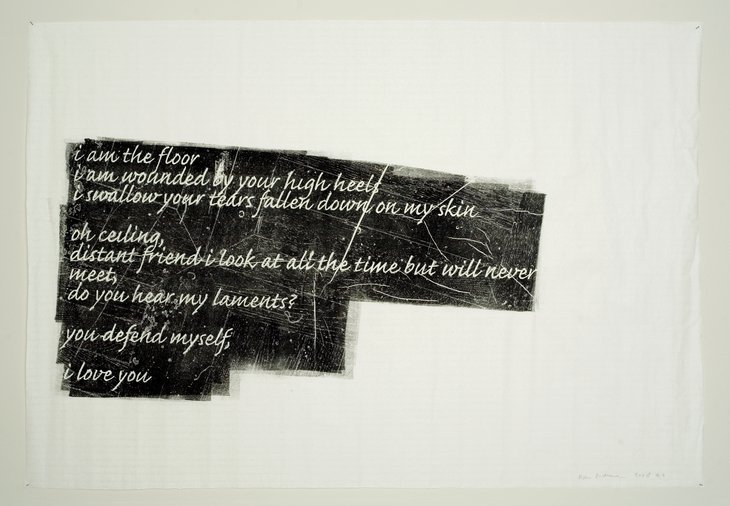 i am the floor
i am wounded by your high heels
i swallow your tears fallen down on my skin
oh ceiling,
distant friend i look at all the time but will never
meet,
do you hear my laments?
you defend myself,
i love you